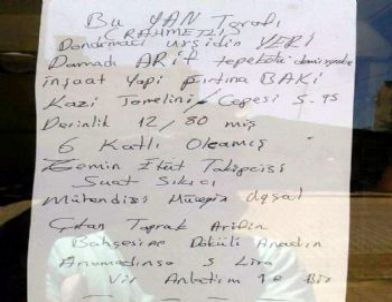 Bu YAN Tarafı
(RAHMETLİ)
Dondurmacı urşidin YERİ
Damadı ARİF tepekötü
inşaat Yapi Fırtına BAKİ
Kazi Temelini / Cepesi 5.95
Derinlik 12/80 miş
6 Katlı Olcamış
Zemin Etüt Takipcisi
Suat Sıkıcı
Mühendisi Hüseyin Uysal
Çıkan Toprak Arifin
Bahçesine Döküli Anadın
Anamadınsa 5 Lira
Vir Anladım 1e Bir